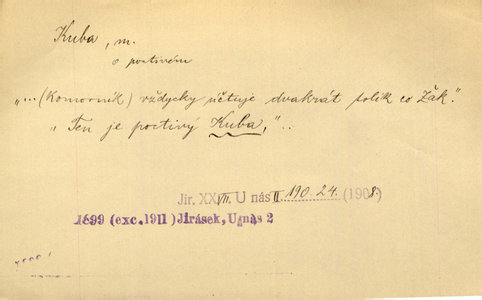 Kuba, m.
o poctivém
„... (Komorník) vždycky účtuje dvakrát tolik co Žák.“
„Ten je poctivý Kuba,“..
Jir. XXVII. U nás II. 190. 24. (1908.)
1899 (exc. 1911) Jirásek, U nás 2